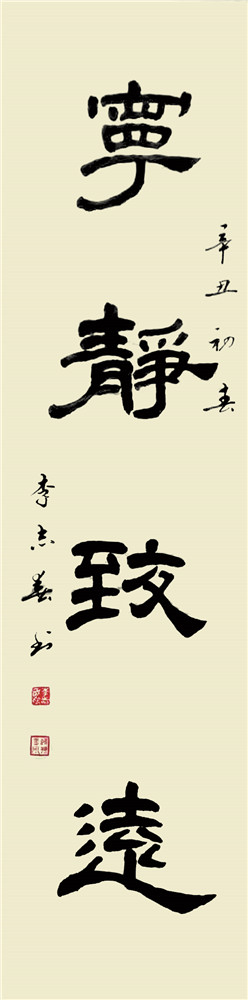 寧靜致遠
辛丑初春
李志